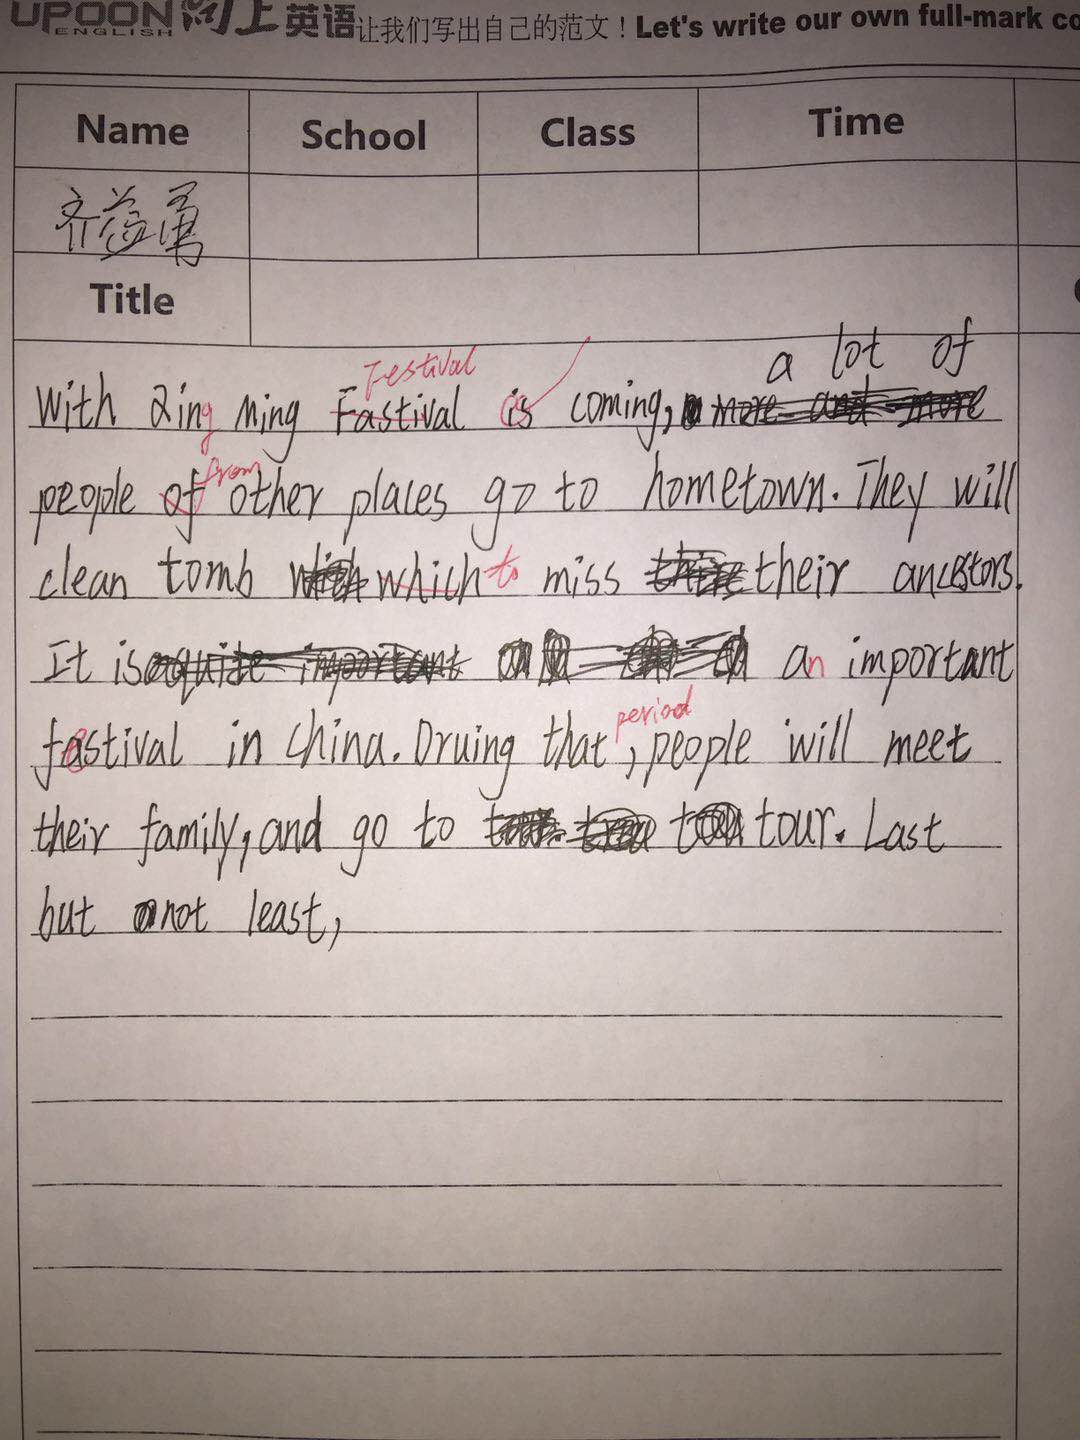 UPOON ENGLISH 向上英语 让我们写出自己的范文！Let's write our own full-mark co
Name School Class Time
齐益勇
Title
Festival a lot of
With Qing Ming Fastival is coming,
from
people of other places go to hometown. They will
clean tomb which to miss their ancestors.
It is an important
period
festival in China. Druing that, people will meet
their family, and go to tour. Last
but not least,